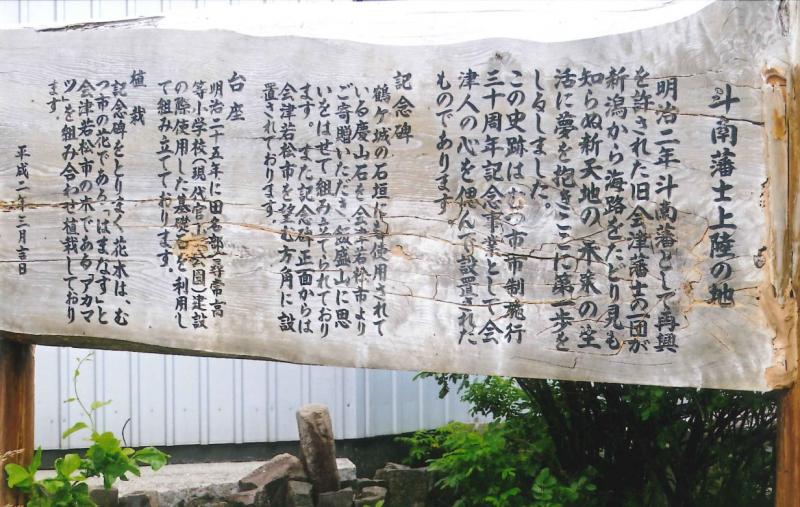 斗南藩士上陸の地
明治二年斗南藩として再興
を許された旧会津藩士の一団が
新潟から海路をたどり見も
知らぬ新天地の未来の生
活に夢を抱きここに第一歩を
しるしました。
この史跡はむつ市市制施行
三十周年記念事業として会
津人の心を偲んで設置された
ものであります。
記念碑
鶴ヶ城の石垣に使用されて
いる慶山石を会津若松市より
ご寄贈いただき飯盛山に思
いをはせて組み立てられており
ます。また記念碑正面からは
会津若松市を望む方角に設
置されております。
台座
明治二十五年に田名部(尋常)高
等小学校(現代官山公園)建設
の際使用した基礎石を利用し
て組み立てております。
植栽
記念碑をとりまく花木は、む
つ市の花である「はまなす」と
会津若松市の木である「アカマ
ツ」を組み合わせ植栽しており
ます。
平成二年三月吉日